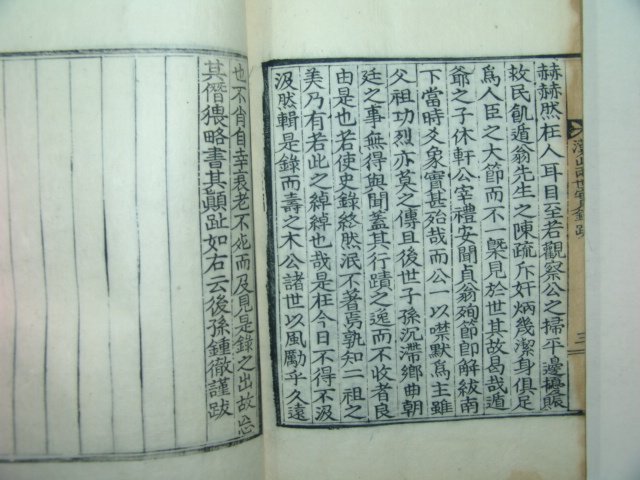 赫赫然在人耳目至若觀察公之掃平邊擾賑
救民飢遁翁先生之陳疏斥奸炳幾潔身俱足
爲人臣之大節而不一槩見於世其故曷哉遁
爺之子休軒公宰禮安聞貞翁殉節卽解紱南
下當時爻象實甚殆哉而二公一以噤默爲主雖
父祖功烈亦莫之傳且後世子孫沉滯鄕曲朝
廷之事無得與聞蓋其行蹟之逸而不收者良
由是也若使史錄終然泯不著焉孰知二祖之
美乃有若此之綽綽也哉是在今日不得不汲
汲然輯是錄而壽之木公諸世以風勵乎久遠
也不肖自幸衰老不死而及見是錄之出故忘
其僭猥略書其顚趾如右云後孫鍾徹謹跋
兩世實錄跋
三